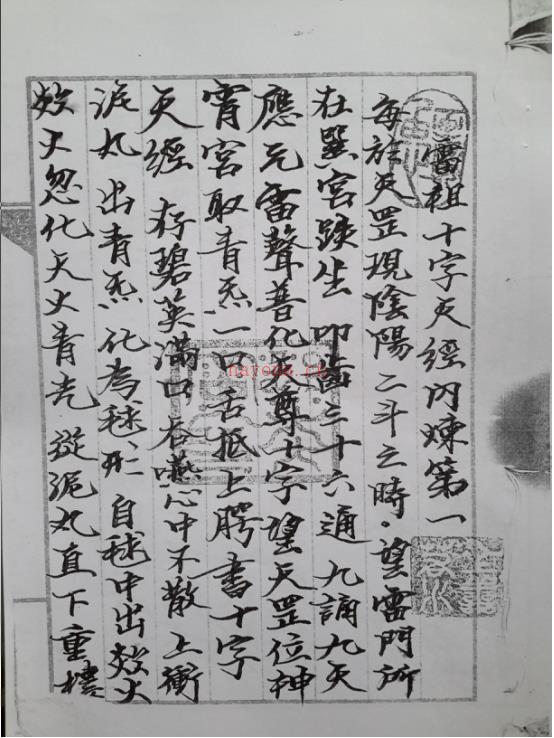 雷祖十字天經内煉第一
每於天罡現陰陽二斗之時。望雷門所
在巽宮趺坐 叩齒三十六通 九誦九天
應元雷聲普化天尊十字望天罡位神
霄宮取青炁一口舌抵上腭 書十字
天經 存碧英滿口吞嚥心中不散上衝
泥丸 出青炁化為毬形 自毬中出火
火忽化天火青光 從泥丸直下重樓
nayona.cn